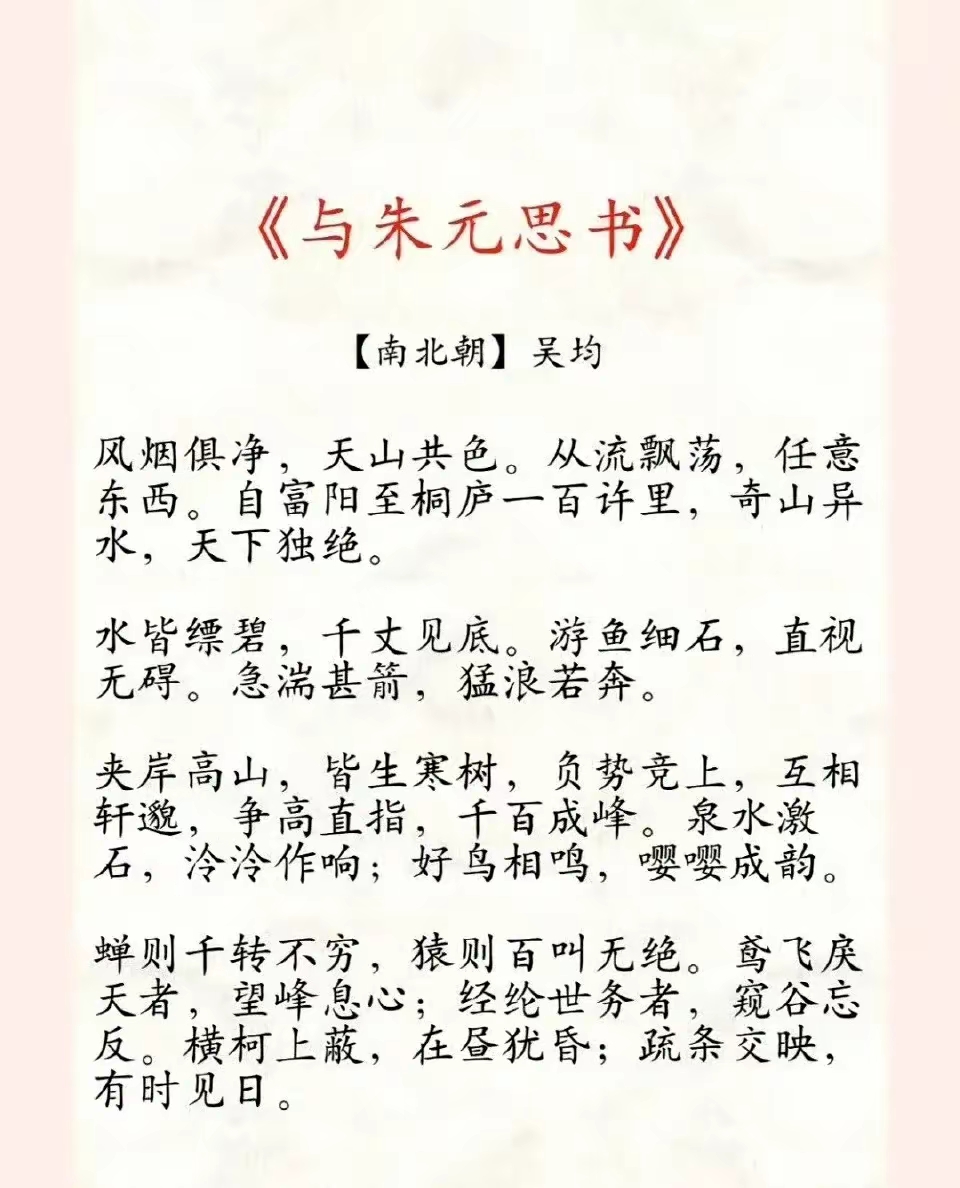 《与朱元思书》
【南北朝】吴均
风烟俱净，天山共色。从流飘荡，任意
东西。自富阳至桐庐一百许里，奇山异
水，天下独绝。
水皆缥碧，千丈见底。游鱼细石，直视
无碍。急湍甚箭，猛浪若奔。
夹岸高山，皆生寒树，负势竞上，互相
轩邈，争高直指，千百成峰。泉水激
石，泠泠作响；好鸟相鸣，嘤嘤成韵。
蝉则千转不穷，猿则百叫无绝。鸢飞戾
天者，望峰息心；经纶世务者，窥谷忘
反。横柯上蔽，在昼犹昏；疏条交映，
有时见日。